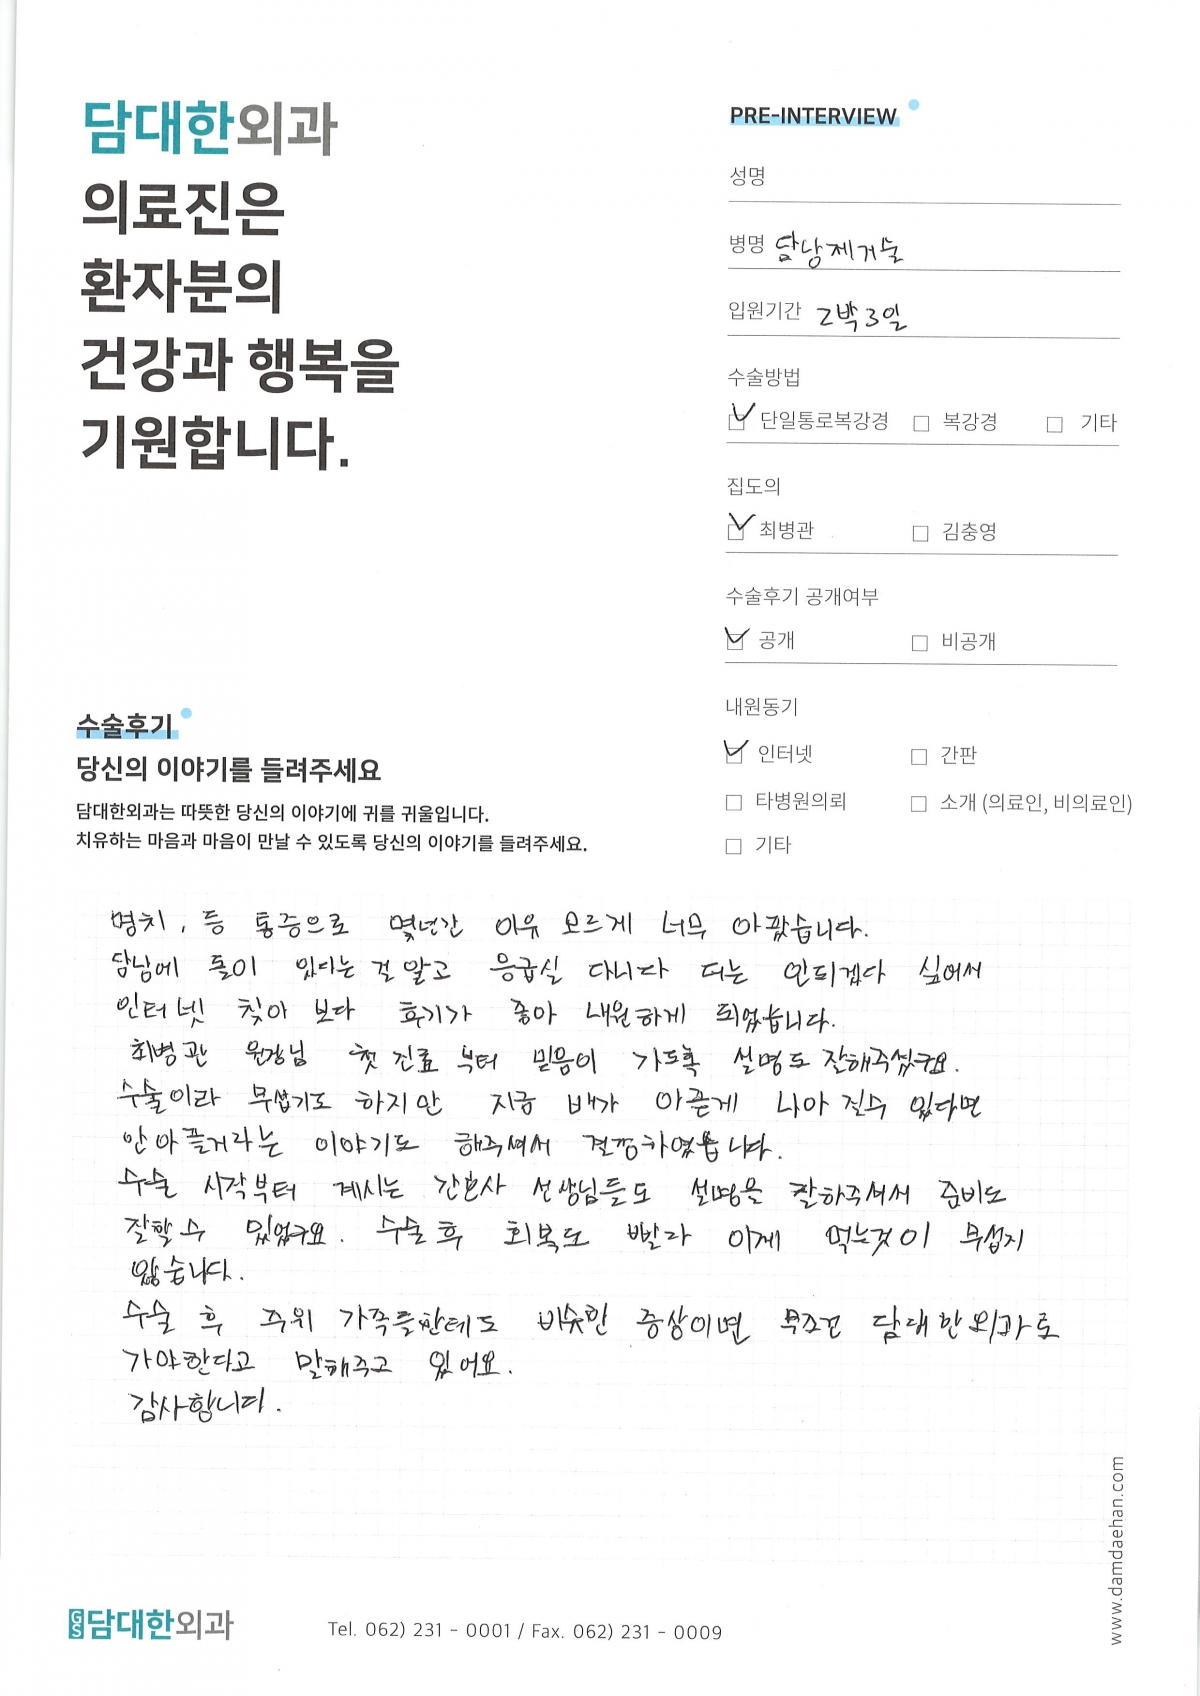 담대한외과
의료진은
환자분의
건강과 행복을
기원합니다.
PRE-INTERVIEW
성명
병명 담낭제거술
입원기간 2박3일
수술방법
단일통로복강경 복강경 기타
집도의
최병관 김충영
수술후기 공개여부
공개 비공개
내원동기
인터넷 간판
타병원의뢰 소개 (의료인, 비의료인)
기타
수술후기
당신의 이야기를 들려주세요
담대한외과는 따뜻한 당신의 이야기에 귀를 귀울입니다.
치유하는 마음과 마음이 만날 수 있도록 당신의 이야기를 들려주세요.
명치, 등 통증으로 몇년간 이유 모르게 너무 아팠습니다.
담낭에 돌이 있다는 걸 알고 응급실 다니다 더는 안되겠다 싶어서
인터넷 찾아 보다 후기가 좋아 내원하게 되었습니다.
최병관 원장님 첫 진료 부터 믿음이 가도록 설명도 잘해주셨구요.
수술이라 무섭기도 하지만 지금 배가 아픈게 나아 질수 있다면
안아플거라는 이야기도 해주셔서 결정하였습니다.
수술 시작부터 계시는 간호사 선생님들도 설명을 잘하주셔서 준비도
잘할 수 있었구요. 수술 후 회복도 빨라 이제 먹는것이 무섭지
않습니다.
수술 후 주위 가족들한테도 비슷한 증상이면 무조건 담대한외과로
가야한다고 말해주고 있어요.
감사합니다.
www.damdaehan.com
GS 담대한외과
Tel. 062) 231 - 0001 / Fax. 062) 231 - 0009